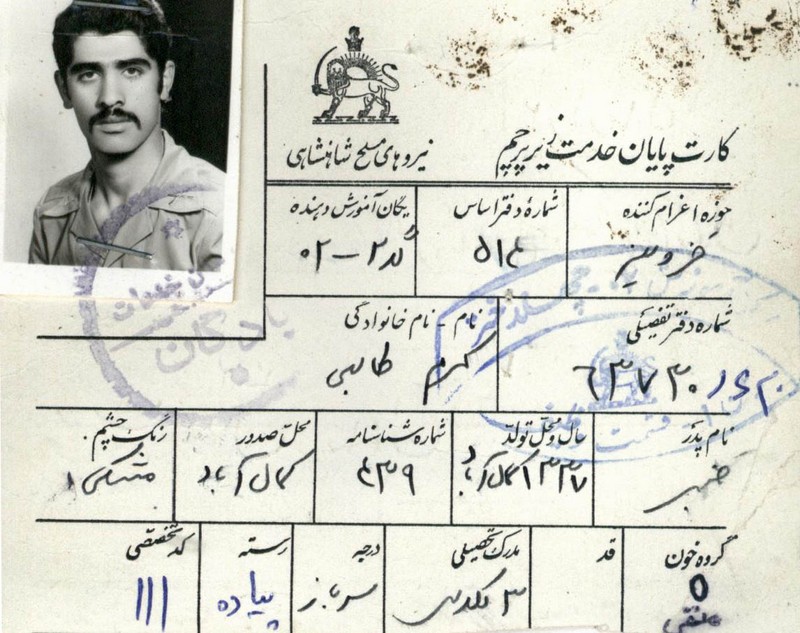 کارت پایان خدمت زیر پرچم
نیروهای مسلح شاهنشاهی
حوزه اعزام کننده
شماره دفتر اساس
یگان آموزش دهنده
۵۱۶
۰۲ -
شماره دفتر تفصیلی
نام - نام خانوادگی
۶۳۷۳۰
کرم طالبی
نام پدر
سال و محل تولد
شماره شناسنامه
محل صدور
رنگ چشم
۱۳۳۷ کمال آباد
۶۳۹
کمال آباد
مشکی
گروه خون
قد
مدرک تحصیلی
درجه
رسته
کد تخصصی
O
۳
سرباز
پیاده
۱۱۱
پادگان